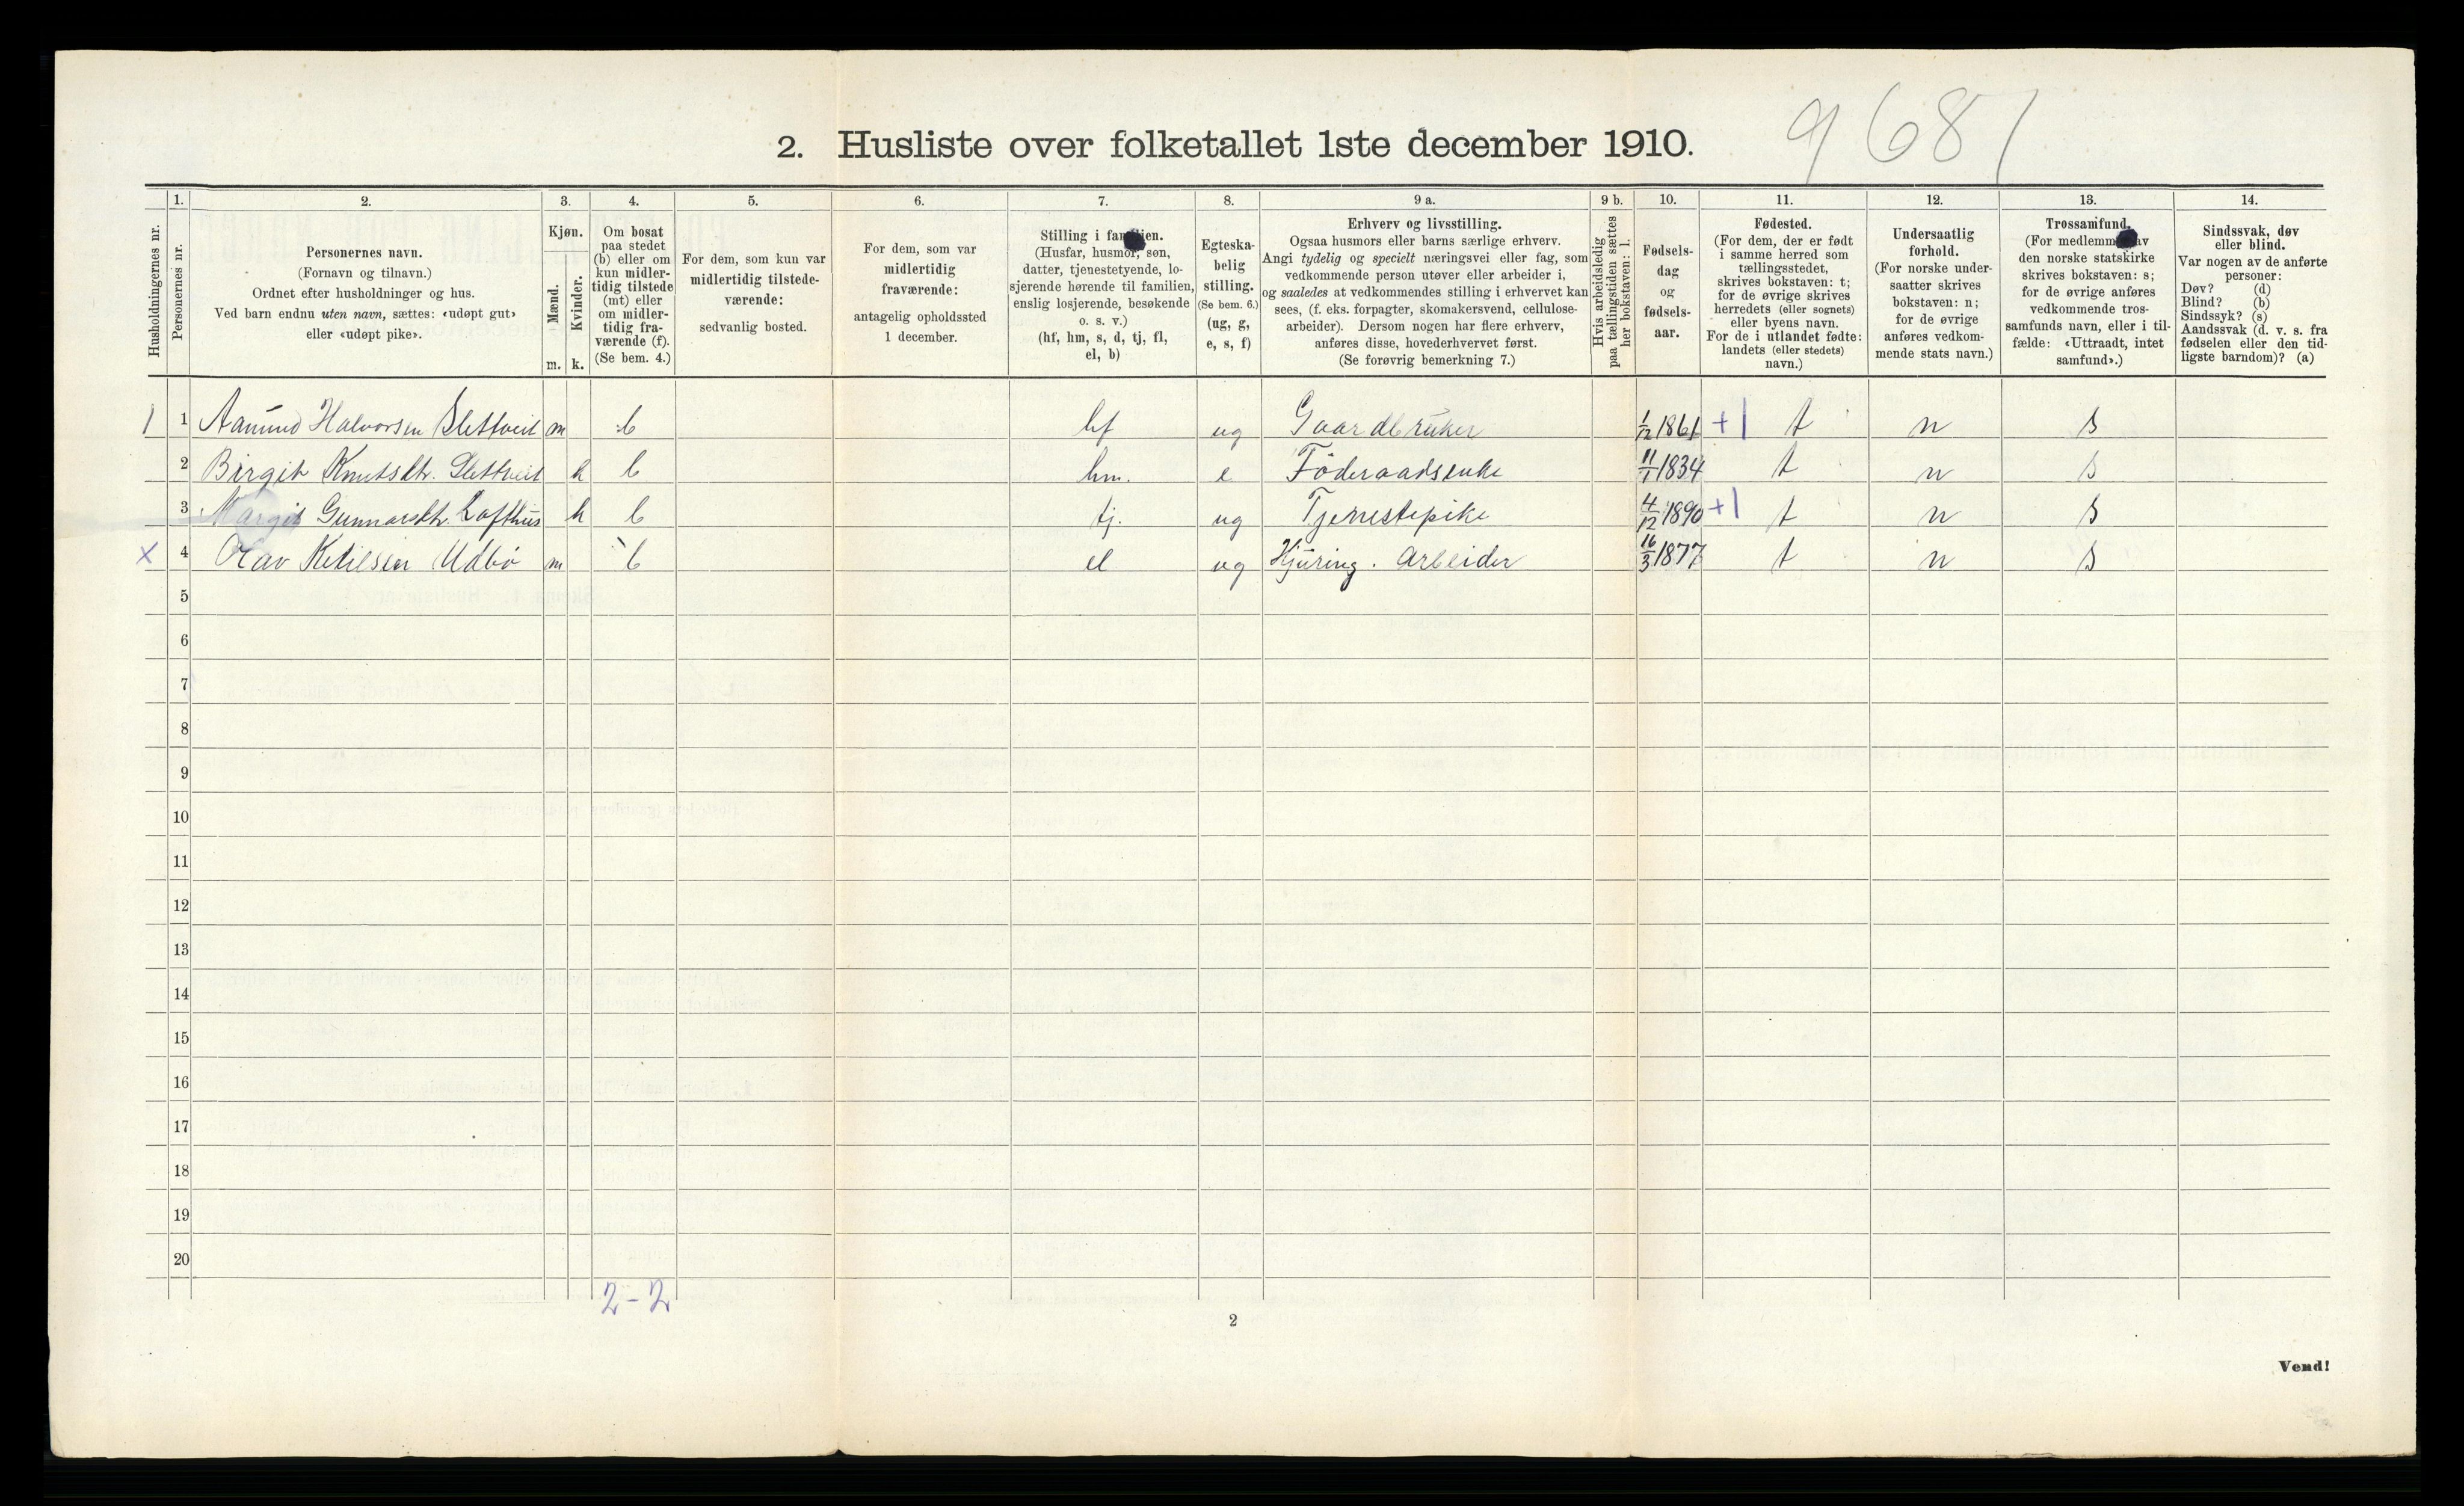 9681
2. Husliste over folketallet 1ste december 1910.
Husholdningernes nr.
1. Personernes nr.
2. Personernes navn.
(Fornavn og tilnavn.)
Ordnet efter husholdninger og hus.
Ved barn endnu uten navn, sættes: «udøpt gut»
eller «udøpt pike».
3. Kjøn.
Mænd. m.
Kvinder. k.
4. Om bosat
paa stedet
(b) eller om
kun midler-
tidig tilstede
(mt) eller
om midler-
tidig fra-
værende (f).
(Se bem. 4.)
5. For dem, som kun var
midlertidig tilstede-
værende:
sedvanlig bosted.
6. For dem, som var
midlertidig
fraværende:
antagelig opholdssted
1 december.
7. Stilling i familien.
(Husfar, husmor, søn,
datter, tjenestetyende, lo-
sjerende hørende til familien,
enslig losjerende, besøkende
o. s. v.)
(hf, hm, s, d, tj, fl,
el, b)
8. Egteska-
belig
stilling.
(Se bem. 6.)
(ug, g,
e, s, f)
9 a. Erhverv og livsstilling.
Ogsaa husmors eller barns særlige erhverv.
Angi tydelig og specielt næringsvei eller fag, som
vedkommende person utøver eller arbeider i,
og saaledes at vedkommendes stilling i erhvervet kan
sees, (f. eks. forpagter, skomakersvend, cellulose-
arbeider). Dersom nogen har flere erhverv,
anføres disse, hovederhvervet først.
(Se forøvrig bemerkning 7.)
9 b. Hvis arbeidsledig
paa tællingstiden sættes
her bokstaven: l.
10. Fødsels-
dag
og
fødsels-
aar.
11. Fødested.
(For dem, der er født
i samme herred som
tællingsstedet,
skrives bokstaven: t;
for de øvrige skrives
herredets (eller sognets)
eller byens navn.
For de i utlandet fødte:
landets (eller stedets)
navn.)
12. Undersaatlig
forhold.
(For norske under-
saatter skrives
bokstaven: n;
for de øvrige
anføres vedkom-
mende stats navn.)
13. Trossamfund.
(For medlemmer av
den norske statskirke
skrives bokstaven: s;
for de øvrige anføres
vedkommende tros-
samfunds navn, eller i til-
fælde: «Uttraadt, intet
samfund».)
14. Sindssvak, døv
eller blind.
Var nogen av de anførte
personer:
Døv? (d)
Blind? (b)
Sindssyk? (s)
Aandssvak (d. v. s. fra
fødselen eller den tid-
ligste barndom)? (a)
1 1 Aamund Halvorsen Slettveit m b hf ug Gaardbruker 1/12 1861 +1 t n s
2 Birgit Knutsdtr. Slettveit k b hm. e Föderaadsenke 11/1 1834 t n s
3 Margit Gunnarsdtr. Lofthus k b tj. ug Tjenestepike 4/12 1890 +1 t n s
x 4 Olav Ketilsen Udbö m b el ug Hjuring. Arbeider 16/3 1877 t n s
5
6
7
8
9
10
11
12
13
14
15
16
17
18
19
20
2-2
2
Vend!